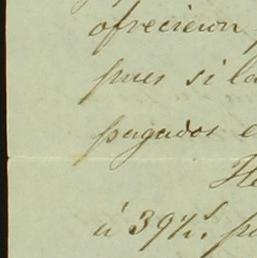 ofrecieron
pues si la
pagados
He
á 39½.